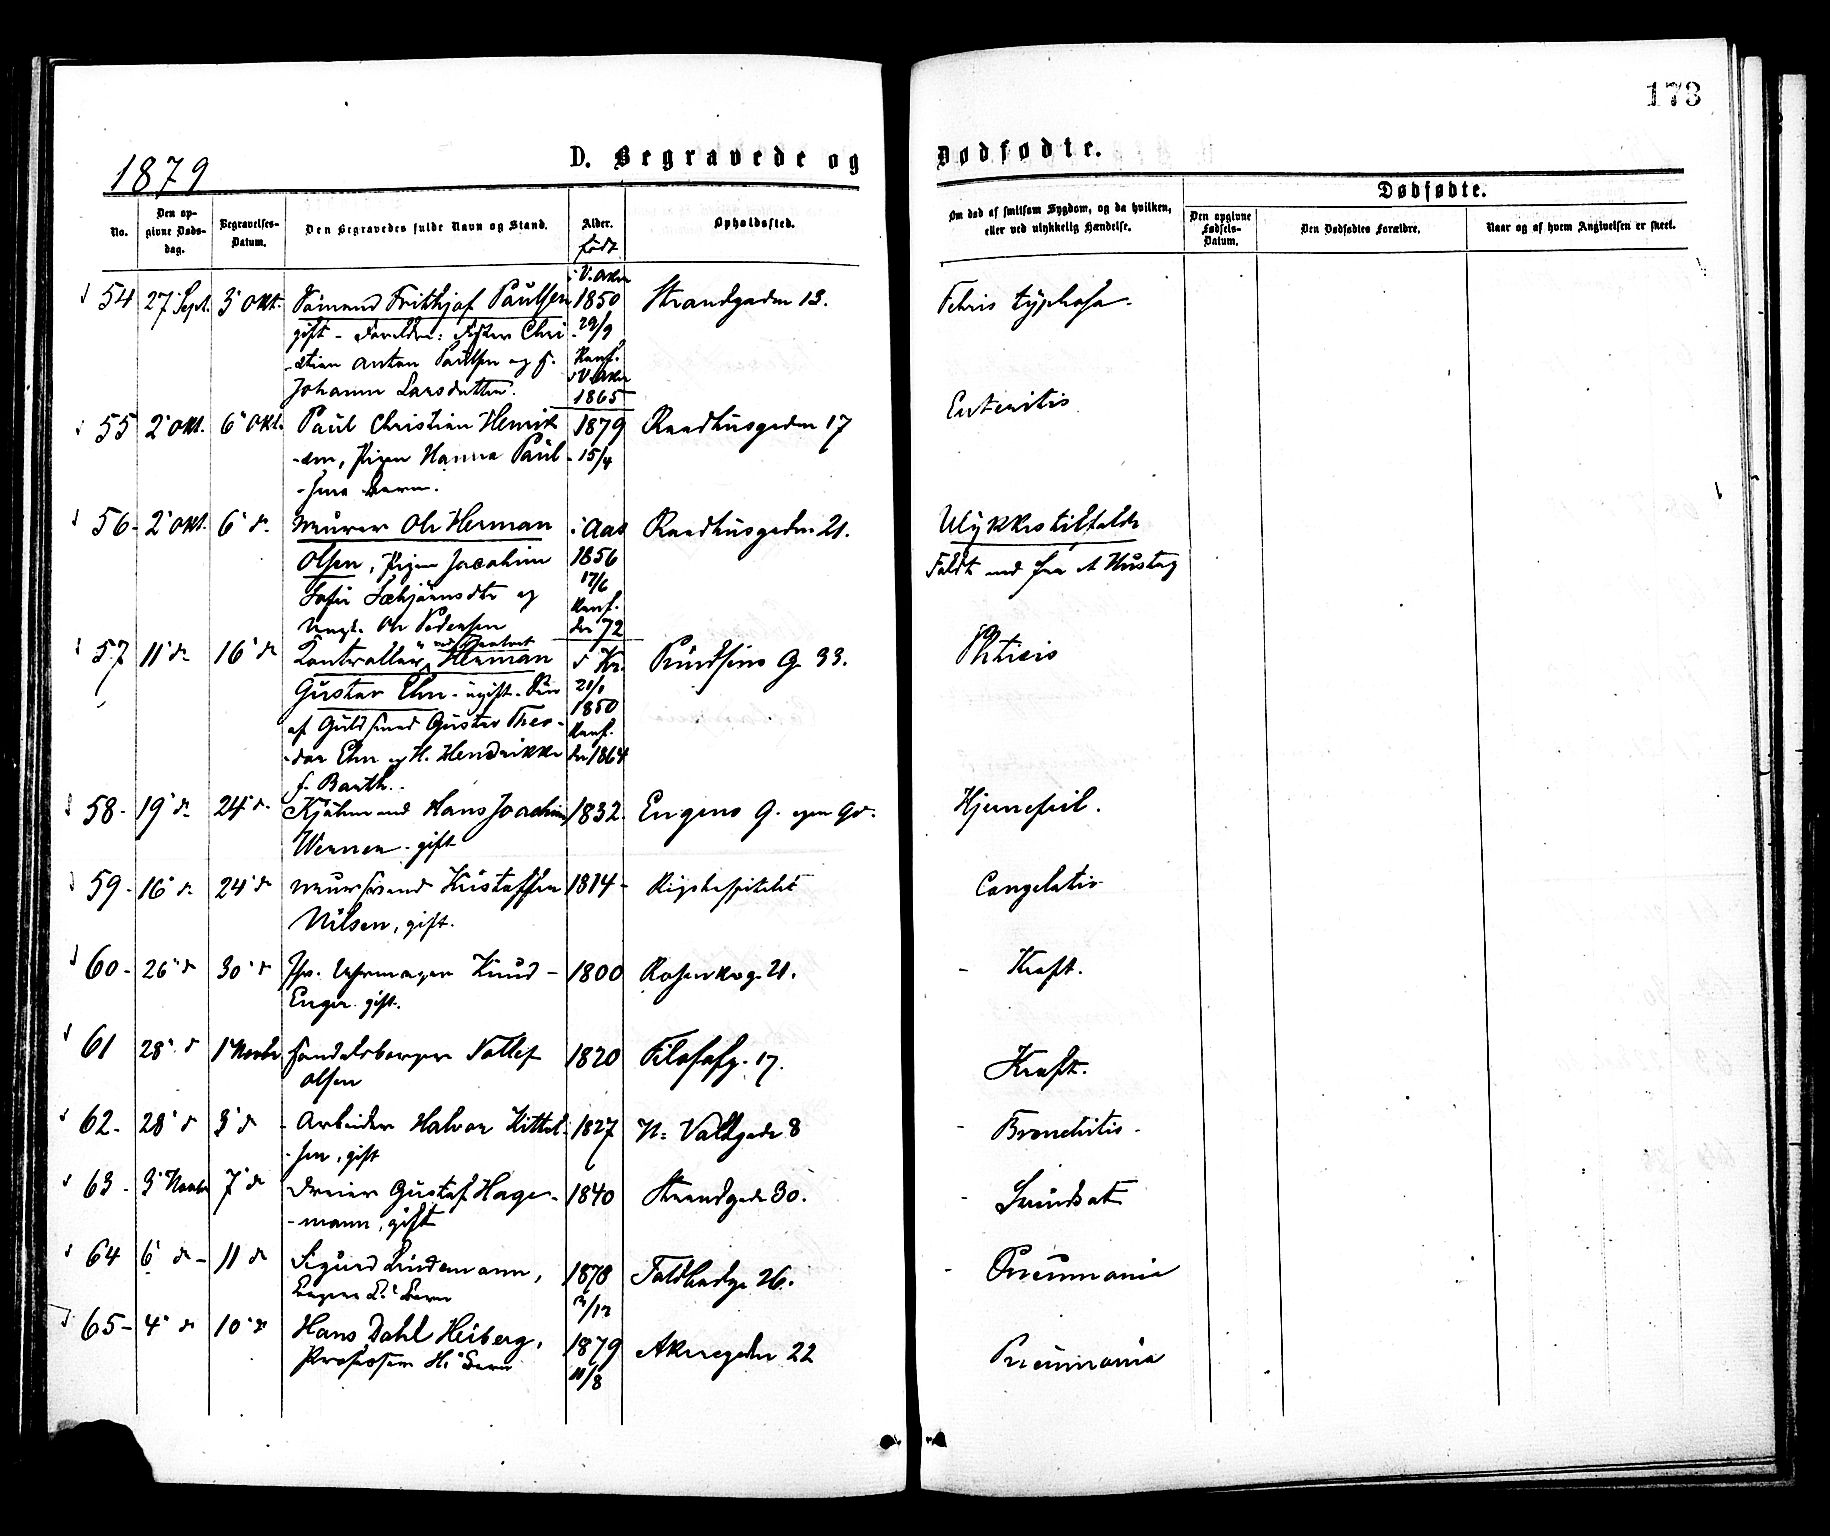 173
1879
D. Begravede og Dødfødte.
No.
Den op-
givne Døds-
dag.
Begravelses-
Datum.
Den Begravedes fulde Navn og Stand.
Alder.
født
Opholdssted.
Om død af smitsom Sygdom, og da hvilken,
eller ved ulykkelig Hændelse.
Dødfødte.
Den opgivne
Fødsels-
Datum.
Den Dødfødtes Forældre.
Naar og af hvem Angivelsen er skeet.
54 27 Sept. 3 Okt. Sömand Frithjof Paulsen i V. Aker 1850 Strandgaden 13. Febris typhosa.
gift - Forældre: Fisker Chri- 29/9
-stian Anton Paulsen og h. Konf.
Johanne Larsdatter. i V. Aker
1865
55 2 Okt. 6 Okt. Paul Christian Henrik 1879 Raadhusgaden 17 Enteritis
-sen, Pigen Hanna Paul- 15/4
-sens Barn.
56 - 2 Okt. 6 d. Murer Ole Herman i Aas Raadhusgaden 21. Ulykkestilfælde
Olsen, Pigen Jacobine 1856 Faldt ned fra et Hustag
Sofie Torbjörnsdtr og 17/6
Ungk. Ole Pedersen Konf.
der 72
57 11 d. 16 d. Kontrollör ved Theatret Herman i Kr. Pundsens G. 33. Phtisis
Gustav Ehn - ugift - Sön 21/1
af Guldsmed Gustav Theo- 1850
-dor Ehn og H. Hendrikke Konf.
f. Barth. der 1864
58 - 19 d. 24 d. Kjöbmand Hans Joachim 1832. Engens G. egen Gd. Hjernefeil.
Wennen - gift
59 - 16 d. 24 d. Murersvend Kristoffer 1814 - Rigshospitalet Congelatio
Nilsen, gift.
60 - 26 d 30 d Fhv. Uhrmager Knud - 1800 Rosenkrg. 21. - Kræft.
Enger gift.
61 28 d 1 Novbr Handelsborger Tollef 1820 Filosofg. 17. Kræft.
Olsen
62 - 28 d 3 d - Arbeider Halvor Kittel- 1827 N: Voldgade 8 - Bronchitis -
-sen, gift
63 - 3 Novbr 7 d Dreier Gustaf Hage- 1840 Strandgade 30. -
-mann, gift
64 6 d - 11 d Sigurd Lindemann, 1878 26. - Pneumonia
L.s Barn 3/12
65 - 4 d 10 d Hans Dahl Heiberg, 1879 Akersgaden 22 Pneumonia
Professor H.s Barn 11/8